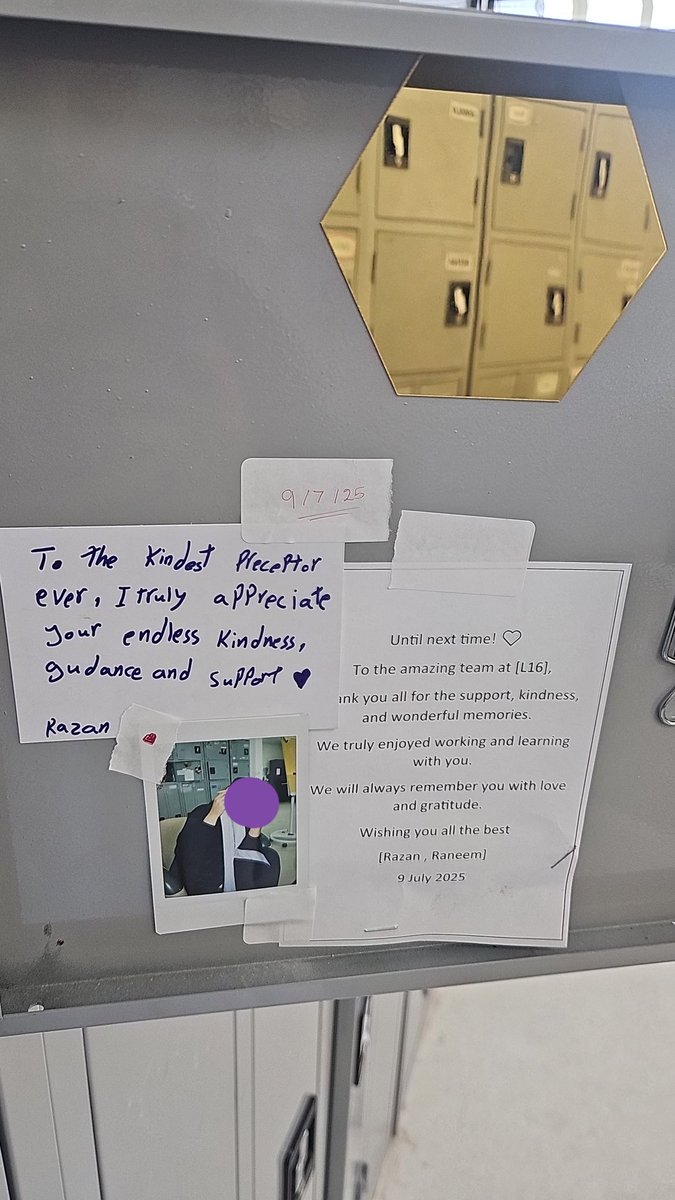 9/7/25
To the Kindest Preceptor
ever, I truly appreciate
your endless Kindness,
gudance and support ♥
Razan
Until next time! ♡
To the amazing team at [L16],
ank you all for the support, kindness,
and wonderful memories.
We truly enjoyed working and learning
with you.
We will always remember you with love
and gratitude.
Wishing you all the best
[Razan , Raneem]
9 July 2025